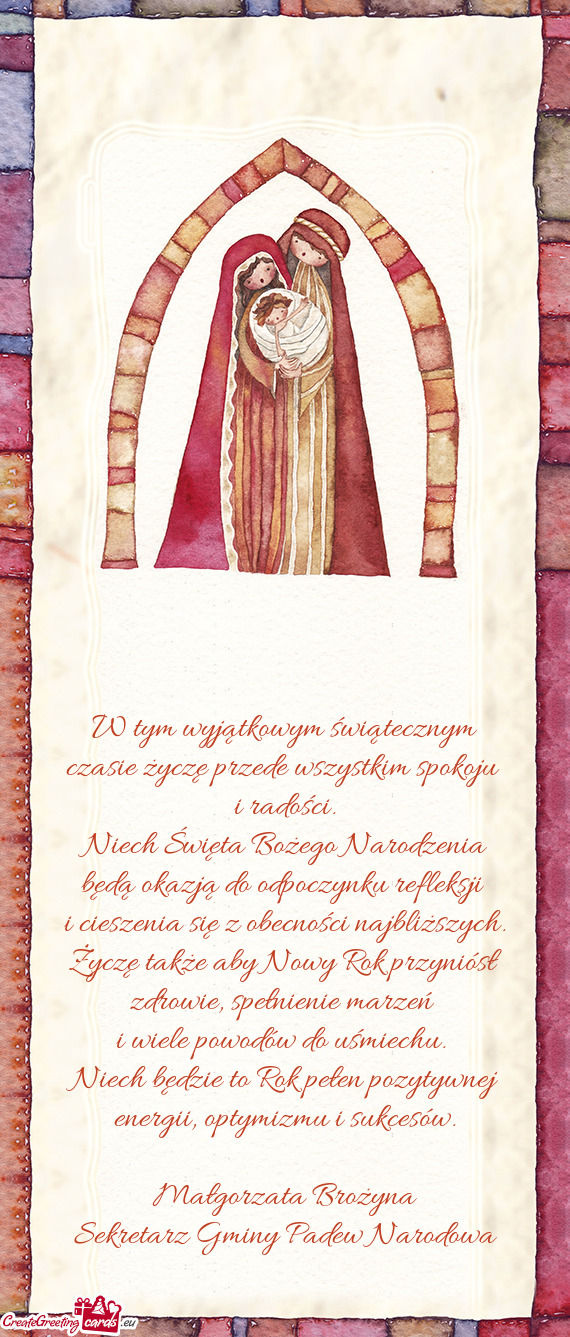 W tym wyjątkowym świątecznym
czasie życzę przede wszystkim spokoju
i radości.
Niech Święta Bożego Narodzenia
będą okazją do odpoczynku refleksji
i cieszenia się z obecności najbliższych.
Życzę także aby Nowy Rok przyniósł
zdrowie, spełnienie marzeń
i wiele powodów do uśmiechu.
Niech będzie to Rok pełen pozytywnej
energii, optymizmu i sukcesów.
Małgorzata Brożyna
Sekretarz Gminy Padew Narodowa
CreateGreeting cards .eu